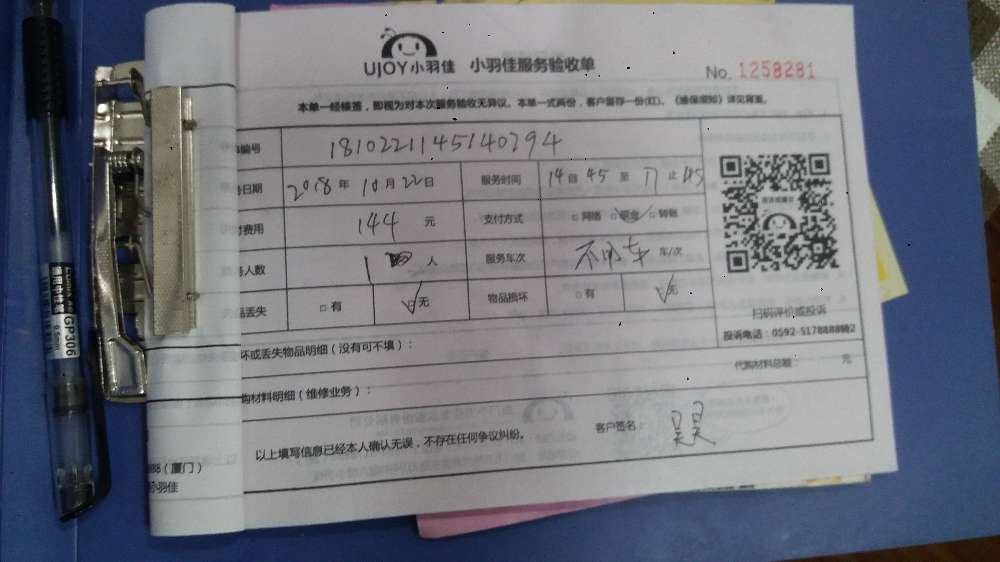 UJOY小羽佳 小羽佳服务验收单
No. 1258281
本单一经接签，即视为对本次服务验收无异议。本单一式两份，客户留存一份(红)。《维保须知》详见背面。
编号 1810221145140294
日期 2018年10月22日 服务时间 14自45至17止45
费用 144元 支付方式 □网络 □现金 □转账
人数 1 人 服务车次 不用车 车/次
品丢失 □有 □无 物品损坏 □有 □无
扫码评价或投诉
投诉电话：0592-5178888转2
坏或丢失物品明细（没有可不填）：
代购材料总额： 元
购材料明细（维修业务）：
以上填写信息已经本人确认无误，不存在任何争议纠纷。 客户签名：
888（厦门）
小羽佳
GP306
0.5mm